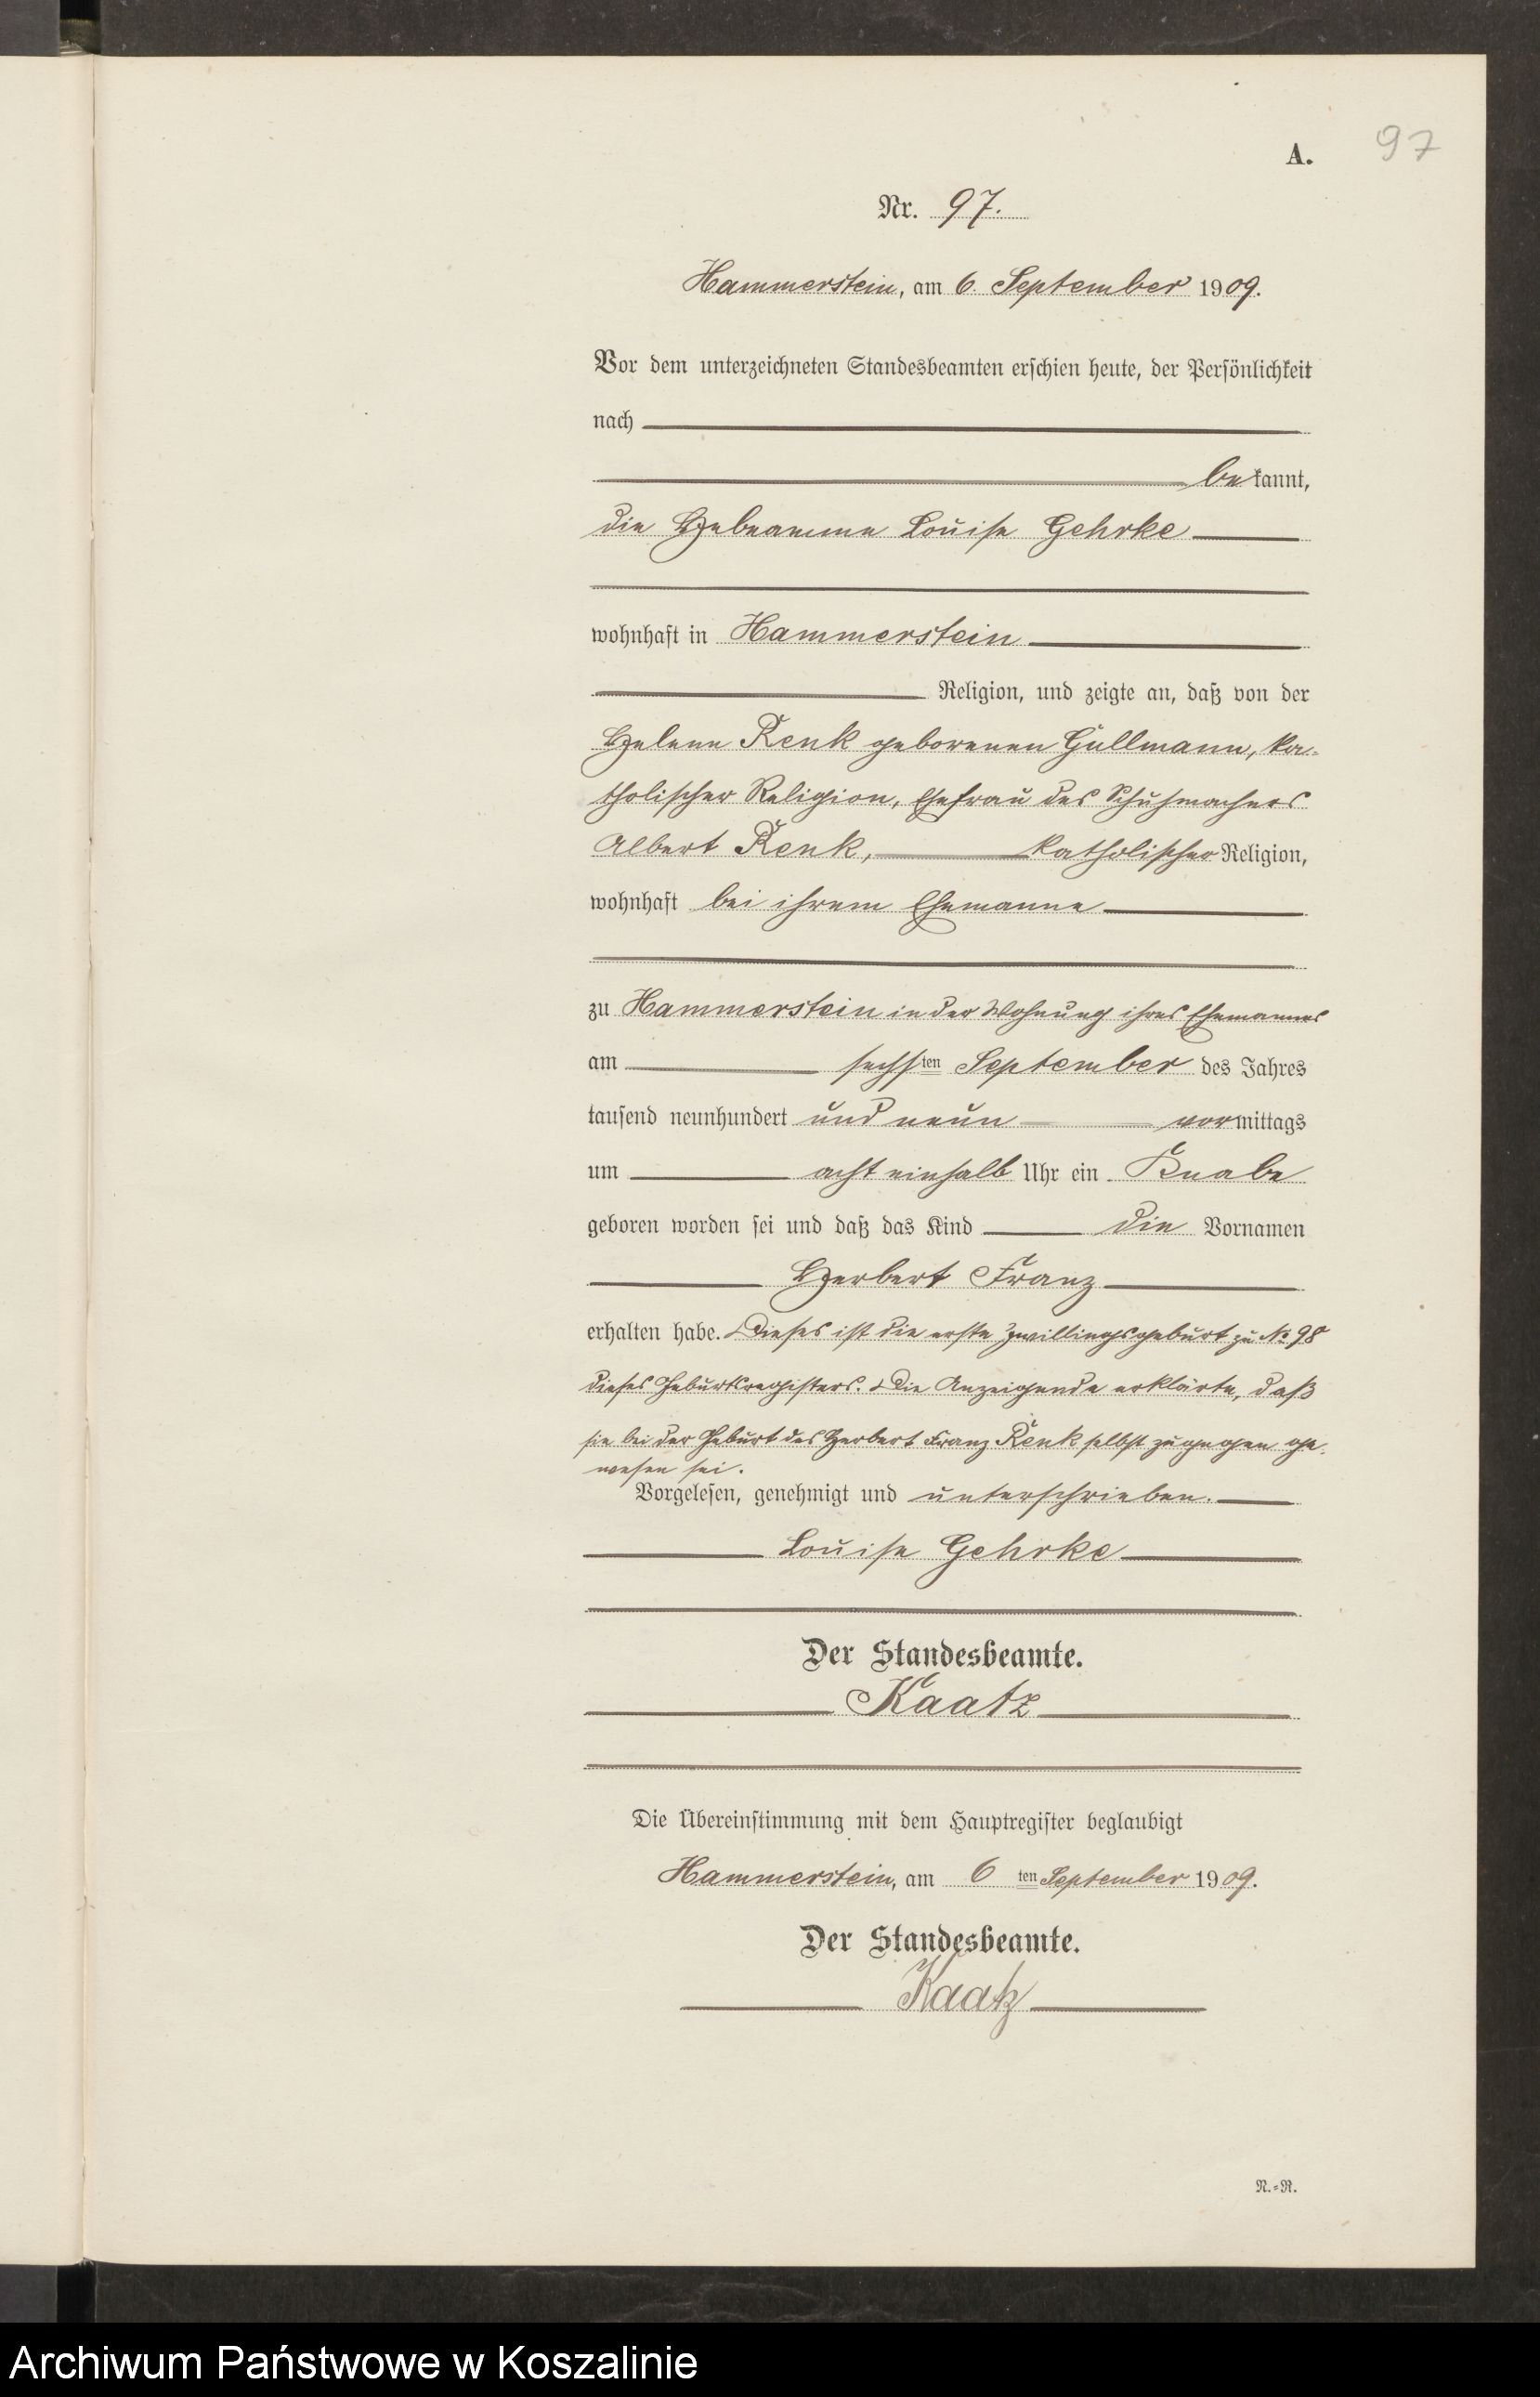 A.
97
Nr. 97.
Hammerstein, am 6. September 1909.
Vor dem unterzeichneten Standesbeamten erschien heute, der Persönlichkeit
nach
bekannt,
die Hebeamme Louise Gehrke
wohnhaft in Hammerstein
Religion, und zeigte an, daß von der
Helene Renk geborenen Gullmann, ka-
tholischer Religion, Ehefrau des Schuhmachers
Albert Renk, katholischer Religion,
wohnhaft bei ihrem Ehemanne
zu Hammerstein in der Wohnung ihres Ehemannes
am sechsten September des Jahres
tausend neunhundert und neun vormittags
um acht einhalb Uhr ein Knabe
geboren worden sei und daß das Kind die Vornamen
Herbert Franz
erhalten habe. Dieses ist die erste Zwillingsgeburt zu No 98
dieses Geburtsregisters. Die Anzeigende erklärte, daß
sie bei der Geburt des Herbert Franz Renk selbst zugegen ge-
wesen sei.
Vorgelesen, genehmigt und unterschrieben.
Louise Gehrke
Der Standesbeamte.
Kaatz
Die Übereinstimmung mit dem Hauptregister beglaubigt
Hammerstein, am 6ten September 1909.
Der Standesbeamte.
Kaatz
N.=R.
Archiwum Państwowe w Koszalinie